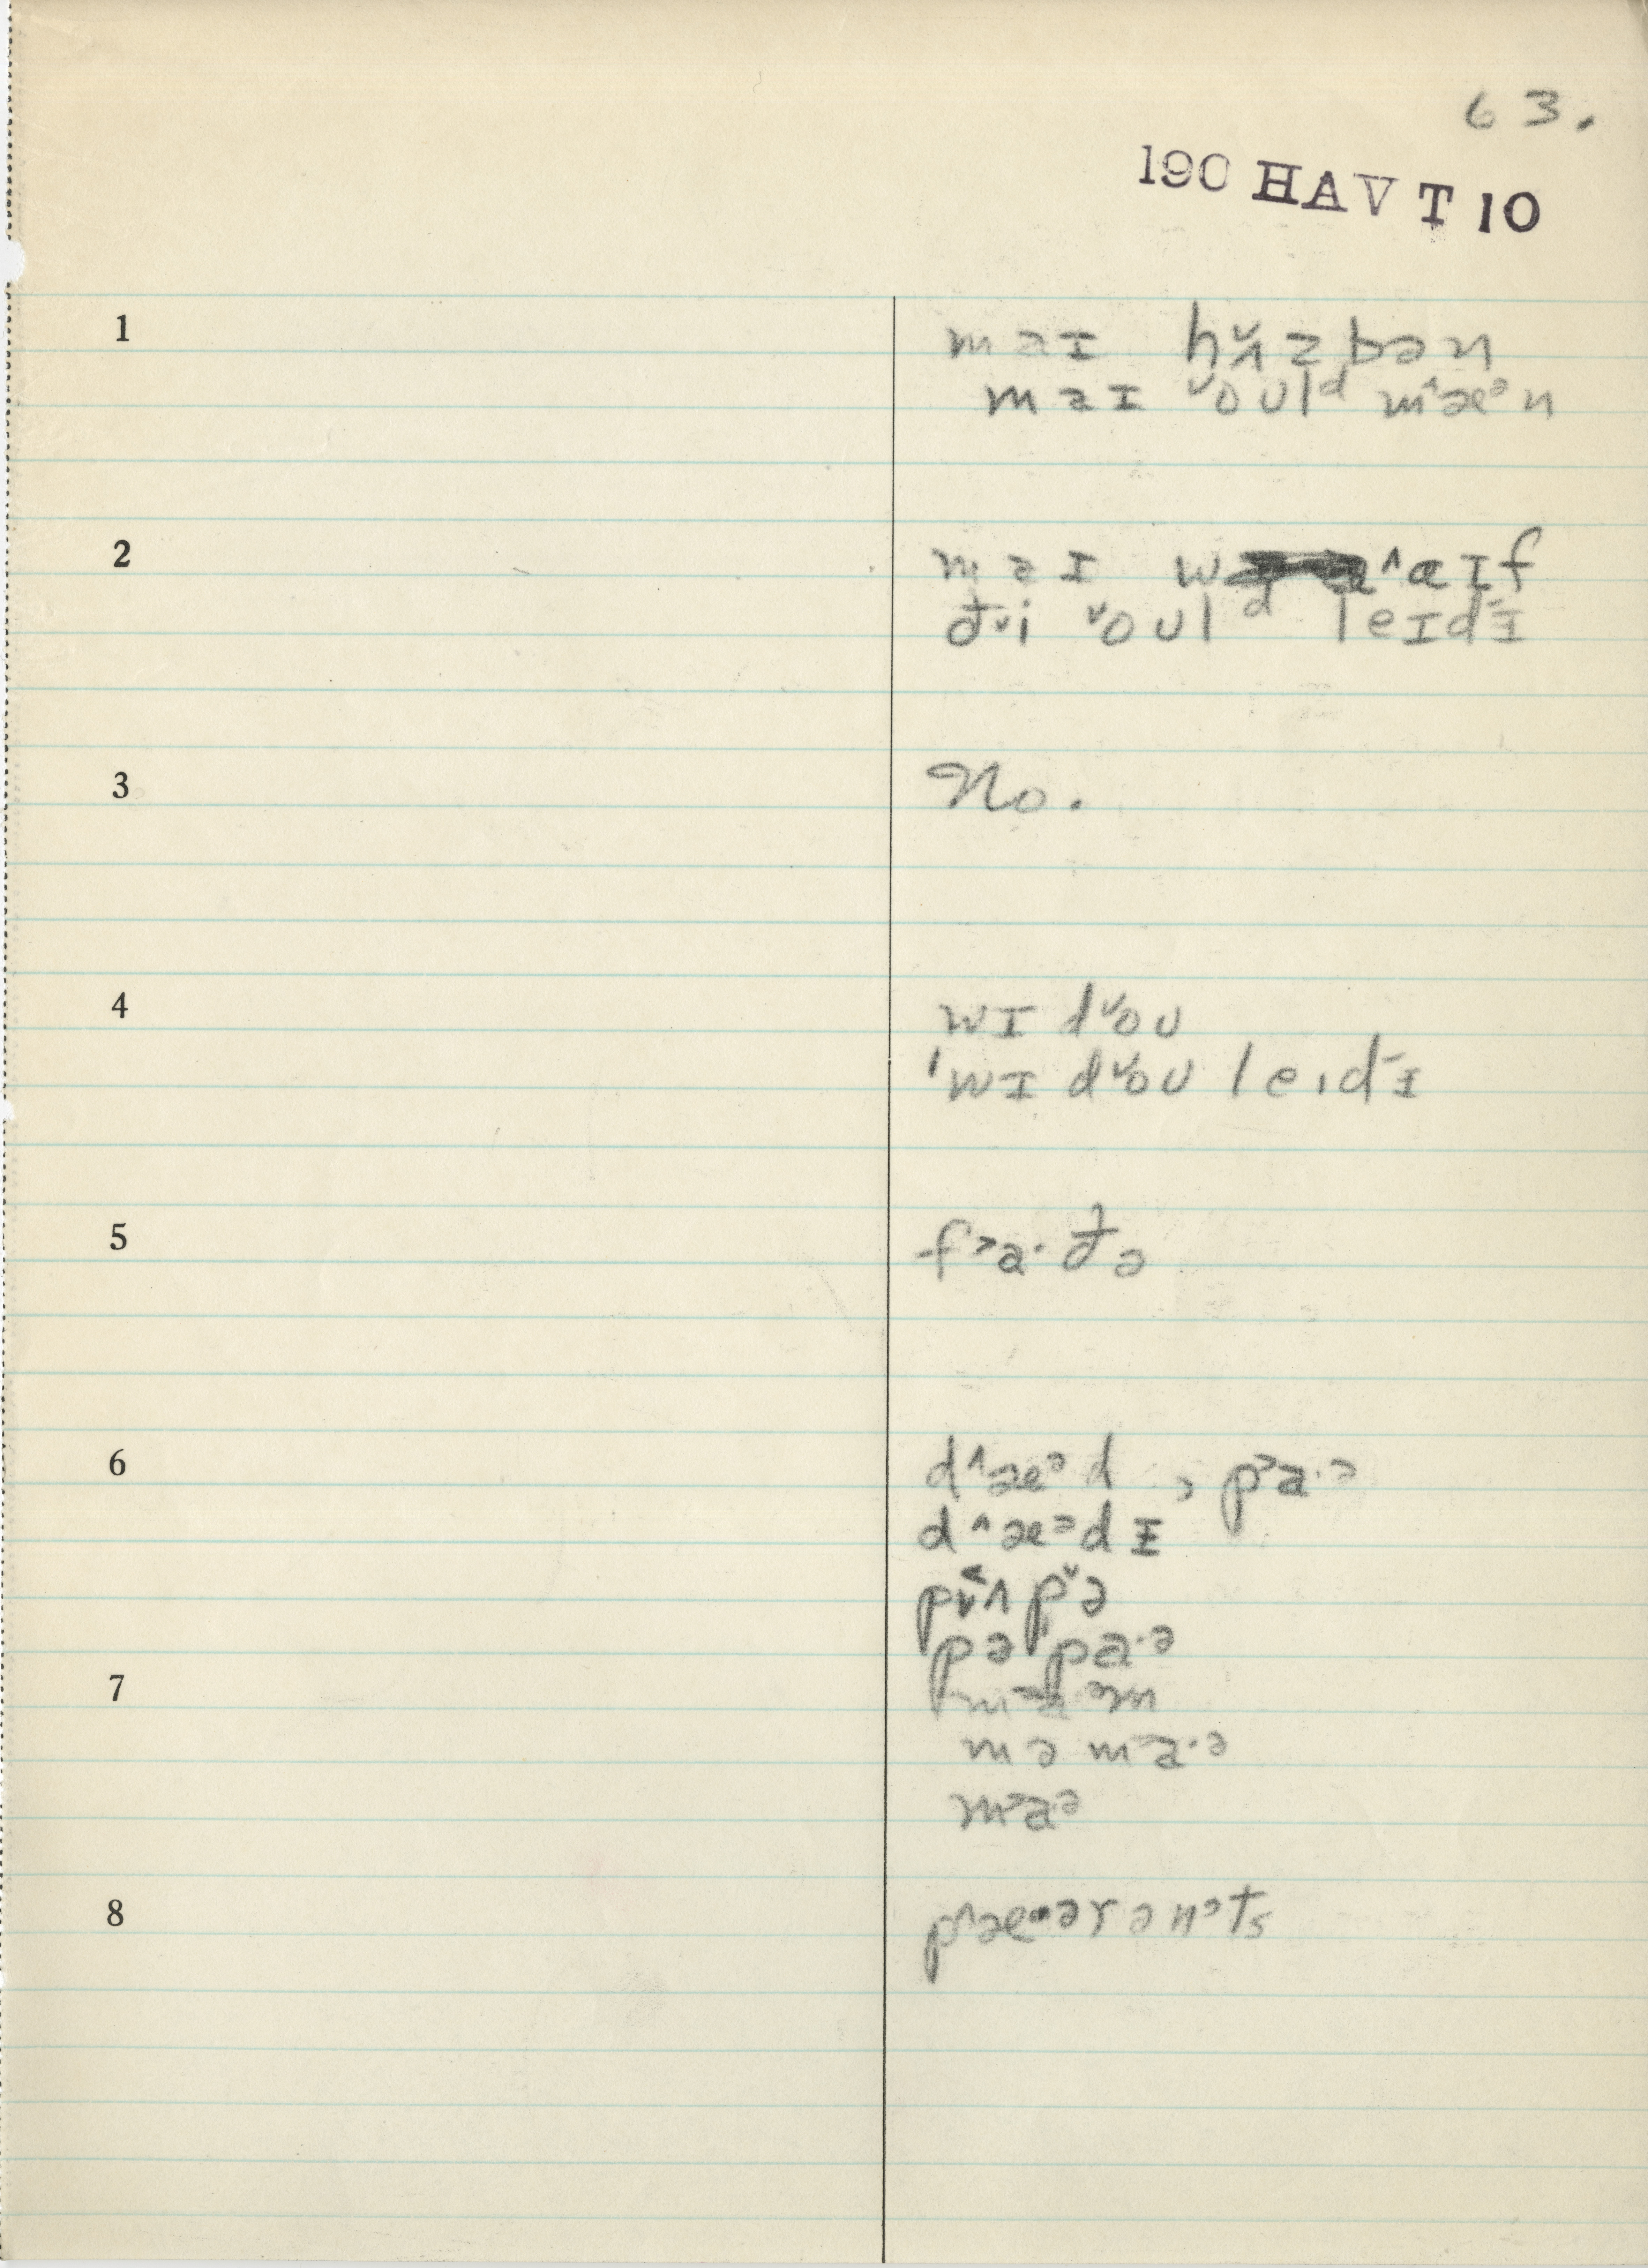 63.
190 HAV T 10
1 maɪ hʌ̌zbən
maɪ ˅oʊlᵈ m˄æᵊn
2 maɪ w˄aɪf
ð˅i ˅oʊlᵈ leɪdɪ̵
3 No.
4 wɪd˅oʊ
ˈwɪd˅oʊ leɪdɪ̵
5 f˃a·ðə
6 d˄æᵊd, p˃a·ᵊ
d˄æᵊdɪ̵
pə pa·ᵊ
7 m˃aᵊm
mə m˃a·ᵊ
m˃a·ᵊ
8 p˄æ·ərənᵊts